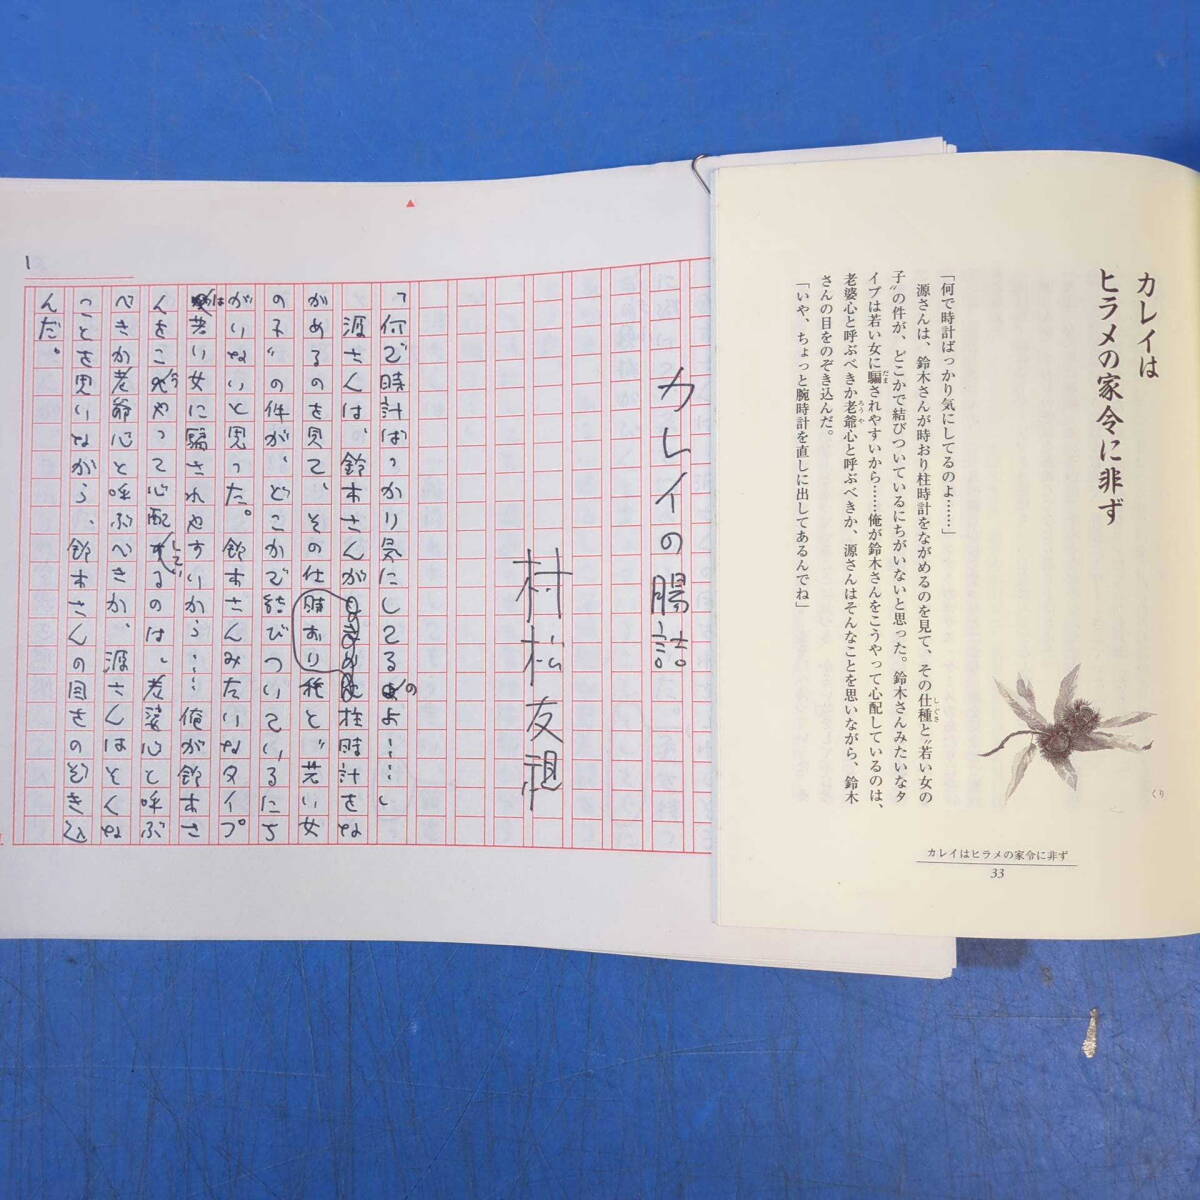 カレイは
ヒラメの家令に非ず
「何で時計ばっかり気にしてるのよ……」
源さんは、鈴木さんが時おり柱時計をながめるのを見て、その仕種と〝若い女の
しぐさ
子〟の件が、どこかで結びついているにちがいないと思った。鈴木さんみたいなタ
イプは若い女に騙されやすいから……俺が鈴木さんをこうやって心配しているのは、
だま
老婆心と呼ぶべきか老爺心と呼ぶべきか、源さんはそんなことを思いながら、鈴木
ろうや
さんの目をのぞき込んだ。
「いや、ちょっと腕時計を直しに出してあるんでね」
くり
カレイはヒラメの家令に非ず
33
カレイの腸詰
村松友視
「何で時計ばっかり気にしてるのよ……」
源さんは、鈴木さんが時おり柱時計をな
がめるのを見て、その仕種と〝若い女
の子〟の件が、どこかで結びついているにち
がいないと思った。鈴木さんみたいなタイプ
は若い女に騙されやすいから……俺が鈴木さ
んをこうやって心配しているのは、老婆心と呼ぶ
べきか老爺心と呼ぶべきか、源さんはそんな
ことを思いながら、鈴木さんの目をのぞき込
んだ。
1